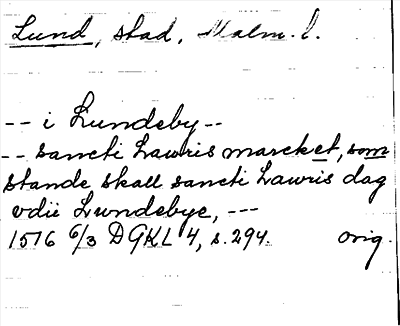 Lund, stad, Malm. l.
-- i Lundeby --
-- sancti Lawris marcket, som
stande skall sancti Lawris dag
vdii Lundebye, ---
1576 6/3 DGKL 4, s. 294. orig.